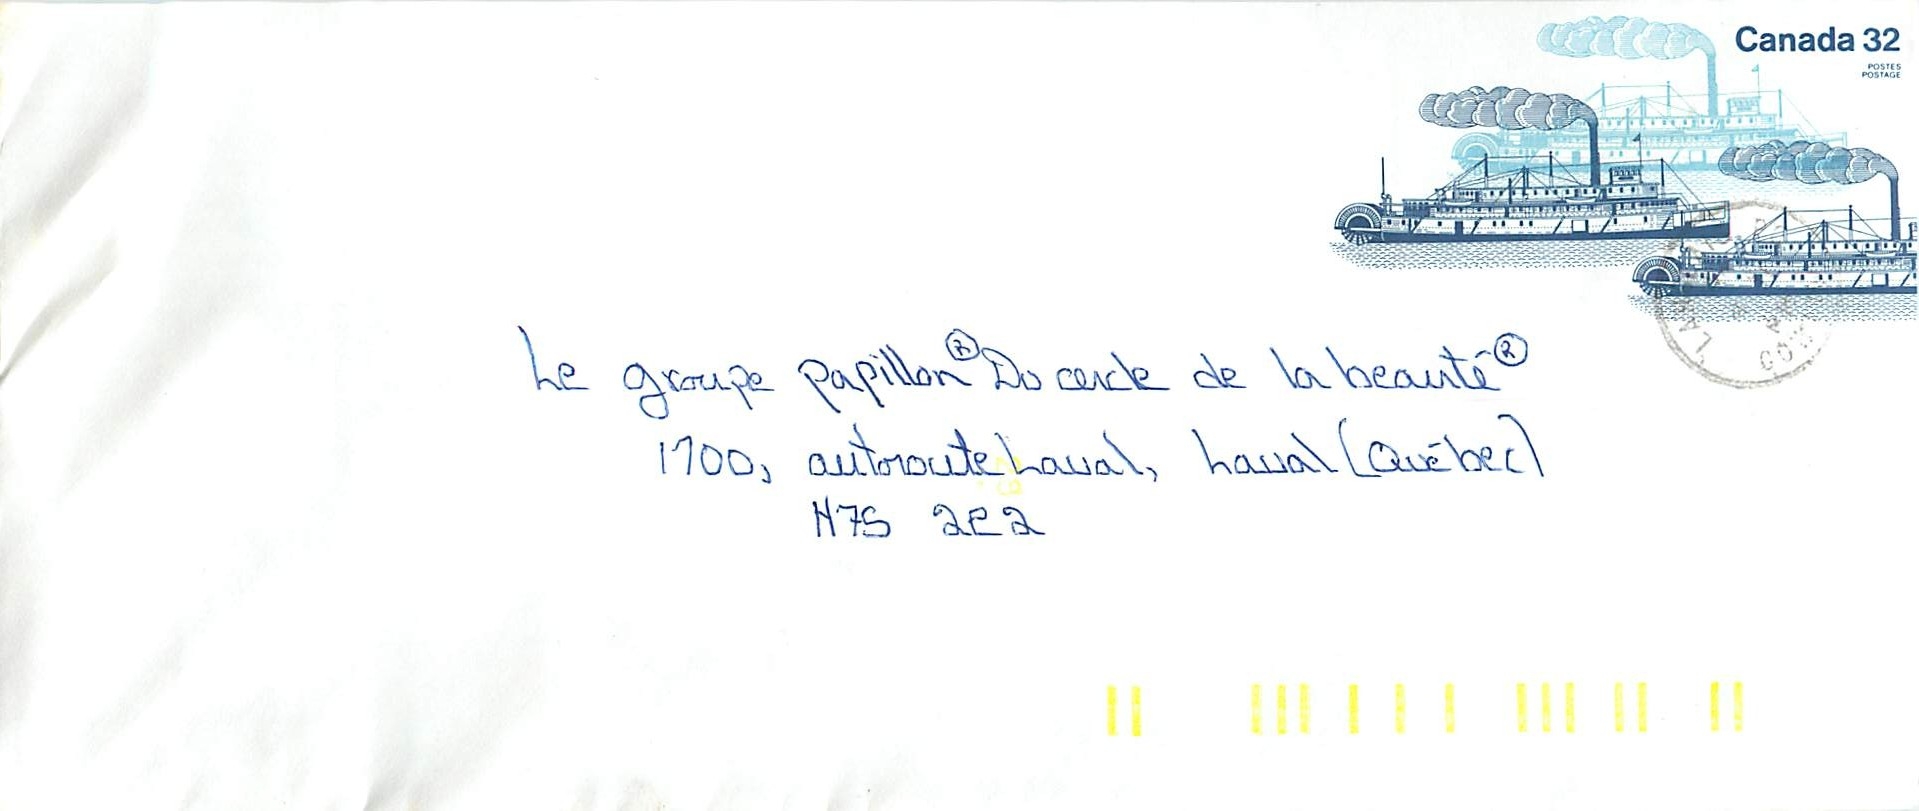 Canada 32
POSTES
POSTAGE
Le groupe papillon® Du cercle de la beauté®
1700, autoroute Laval, Laval (Québec)
H7S 2E2